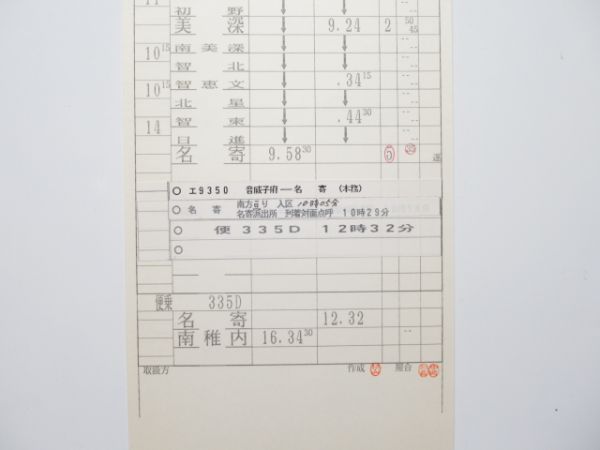 11
初 野 ↓ ↓ --
美 深 9.24 2 50 45
10 15 南 美 深 ↓ ↓ --
智 北 ↓ ↓ --
10 15 智 恵 文 ↓ .34 15
北 星 ↓ ↓ --
14 智 東 ↓ .44 30
日 進 ↓ ↓ --
名 寄 9.58 30 5
○ エ9350 音威子府──名 寄 (本務)
○ 名 寄 南方より 入区 10時05分
名寄派出所 到着対面点呼 10時29分
○ 便 335D 12時32分
○
便乗 335D
名 寄 12.32
南 稚 内 16.34 30 --
取扱方 作成 照合